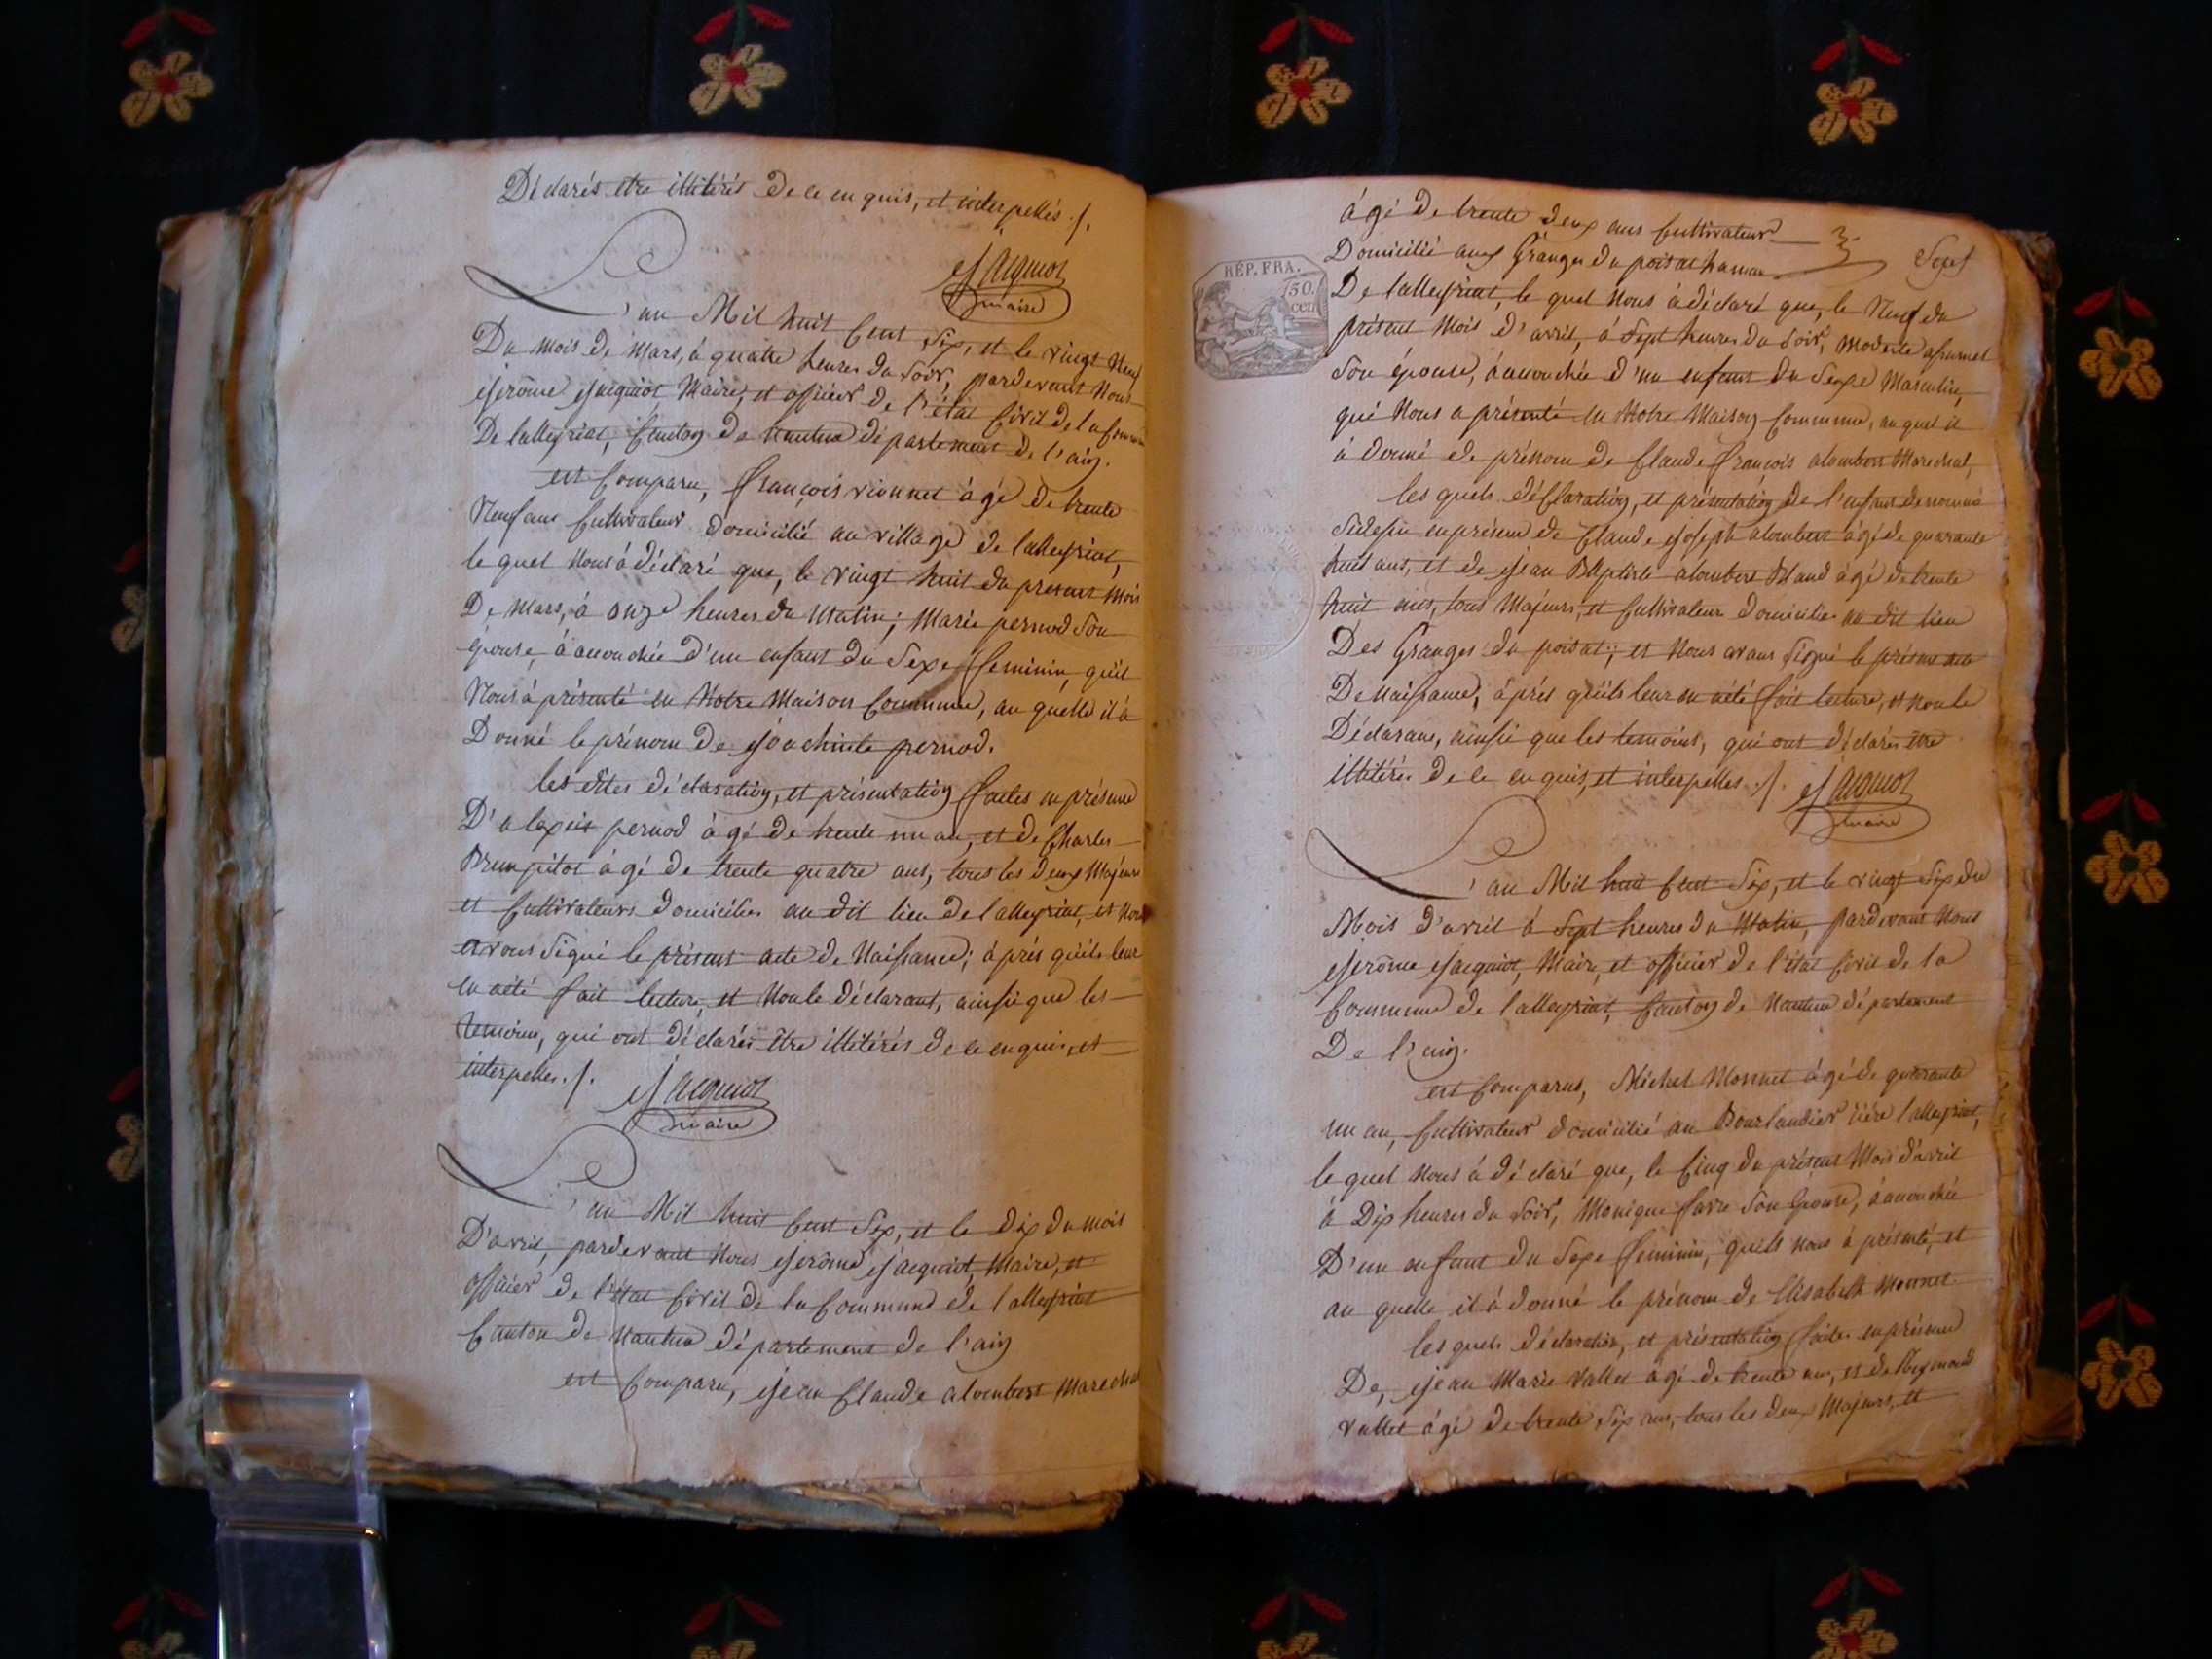 Déclarés etre illitérés de ce enquis, et interpellés ./.
Jacquiot
maire
L'an Mil huit Cent Six, et le vingt Neuf
Du mois de Mars, à quatre heures du Soir, pardevant Nous
jerôme jacquiot Maire, et officier de l'état Civil de la
De lalleyriat, Canton de Nantua département de l'ain.
est Comparu, françois vionnet àgé de trente
Neuf ans Cultivateur domicilié au village de lalleyriat,
le quel Nous à déclaré que, le vingt huit du present Mois
De Mars, à onze heures du Matin; Marie pernod Son
épouse, à accouchée d'un enfant du Sexe feminin, qu'il
Nous à présenté en Notre Maison Commune, au quelle il à
Donné le prénom de joachinte pernod.
les dites déclaration, et présentation faites en présence
D'alexis pernod àgé de trente un an, et de Charles
àgé de trente quatre ans, tous les deux Majeurs
et Cultivateurs domiciliés au dit lieu de lalleyriat, et Nous
avons Signé le présent acte de Naissance; àprés qu'ils leur
en aété fait lecture, et Nonle déclarant, ainsie que les
temoins, qui ont déclarés être illitérés de ce enquis, et
interpelles ./.
Jacquiot
maire
L'an Mil huit Cent Six, et le dix du mois
D'avril, pardevant Nous jerôme jacquiot, Maire, et
officier de l'état Civil de la Commune de lalleyriat
Canton de Nantua département de l'ain
est Comparu, jean Claude alombert Marechal
àgé de trente deux ans Cultivateur
Sept
Domicilié aux Granges du poisat hameau
RÉP. FRA.
50.
cen
De lalleyriat, le quel Nous à déclaré que, le Neuf du
présent Mois d'avril, à Sept heures du Soir, Modeste
Son épouse, à accouchée d'un enfant du Sexe Masculin,
qué Nous a présenté en Notre Maison Commune, au quel il
à donné de prénom de Claude françois alombert Marechal,
les quels déClaration, et présentation de l'enfant denommé
en présence de Claude joseph alombert àgé de quarante
huit ans, et de jean Baptiste alombert àgé de trente
huit ans, tous Majeurs, et Cultivateur domiciliés au dit lieu
Des Granges du poisat; et Nous avans Signé le présent acte
De Naissance, àprés qu'ils leur en aété fait lecture, et Nonle
Déclarant, ainsie que les temoins, qui ont déclarés être
illitérés de ce enquis, et interpelles ./.
Jacquiot
maire
L'an Mil huit Cent Six, et le vingt Six du
Mois d'avril à Sept heures du Matin, pardevant Nous
jerôme jacquiot, Maire, et officier de l'état Civil de la
Commune de lalleyriat, Canton de Nantua département
De l'ain.
est Comparus, Michel Monnet àgé de quarante
un an, Cultivateur domicilié au rière lalleyriat,
le quel Nous à déclaré que, le Cinq du présent Mois d'avril
à Dix heures du Soir, Monique favre Son épouse, à accouchée
D'un enfant du Sexe feminin, qu'ils nous à présenté, et
au quelle il à donné le prénom de Elisabeth Monnet
les quels déclaration, et présentation faites en présence
De, jean Marie Vallet àgé de trente an, et de Reymond
vallet àgé de trente Six ans, tous les deux Majeurs, et